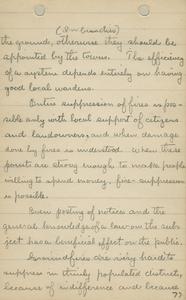 the ground, otherwise they should be
appointed by the towns. The efficiency
of a system depends entirely on having
good local wardens.
Entire suppression of fires is pos-
sible only with local support of citizens
and landowners, and when damage
done by fires is understood. When these
points are strong enough to make people
willing to spend money, fire-suppression
is possible.
Even posting of notices and the
general knowledge of a law on the sub-
ject has a beneficial effect on the public.
Ground fires are very hard to
suppress in thinly populated districts,
because of indifference and because